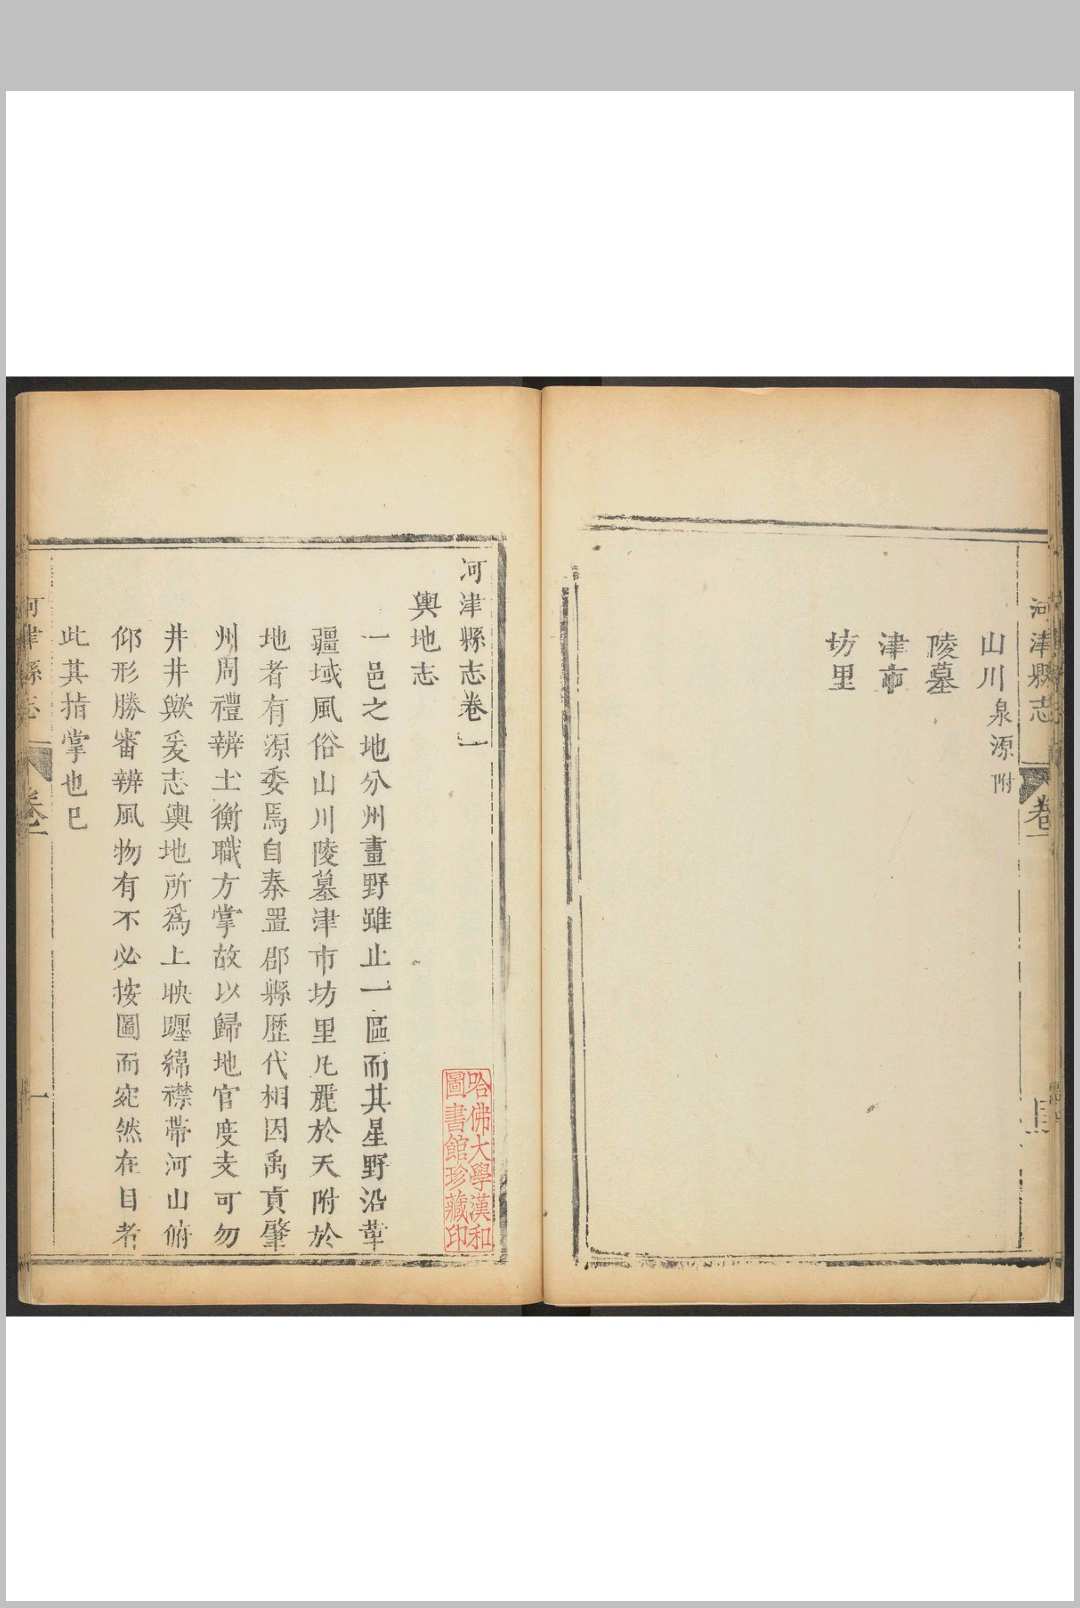 河津縣志
卷一
山川泉源附
陵墓
津市
坊里
河津縣志卷一
輿地志
一邑之地分州畫野雖止一區而其星野沿革
疆域風俗山川陵墓津市坊里凡麗於天附於
地者有源委焉自秦置郡縣歷代相因禹貢肇
州周禮辨土衡職方掌故以歸地官度支可勿
井井歟爰志輿地所爲上映躔綿襟帶河山俯
仰形勝審辨風物有不必按圖而宛然在目者
此其指掌也已
河津縣志
卷一
一
哈佛大學漢和
圖書館珍藏印